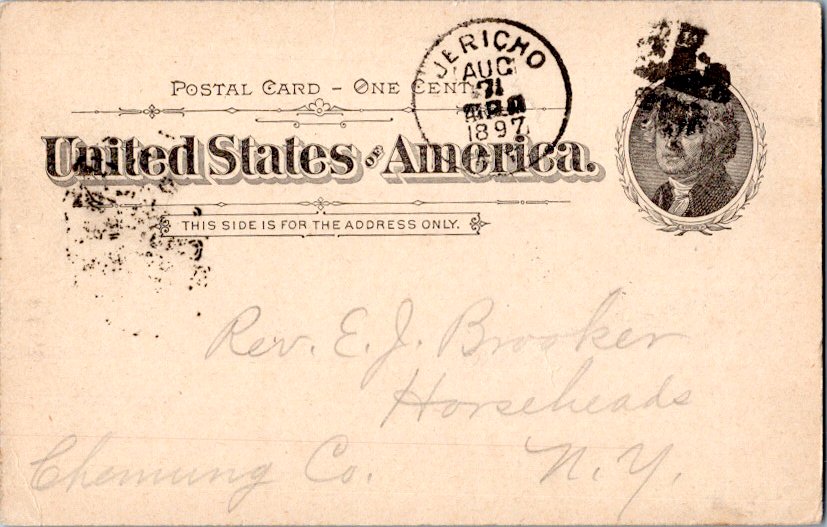 POSTAL CARD – ONE CENT
JERICHO
AUG
1897
United States of America.
THIS SIDE IS FOR THE ADDRESS ONLY.
Rev. E. J. Brooker
Horseheads
Chemung Co. N.Y.